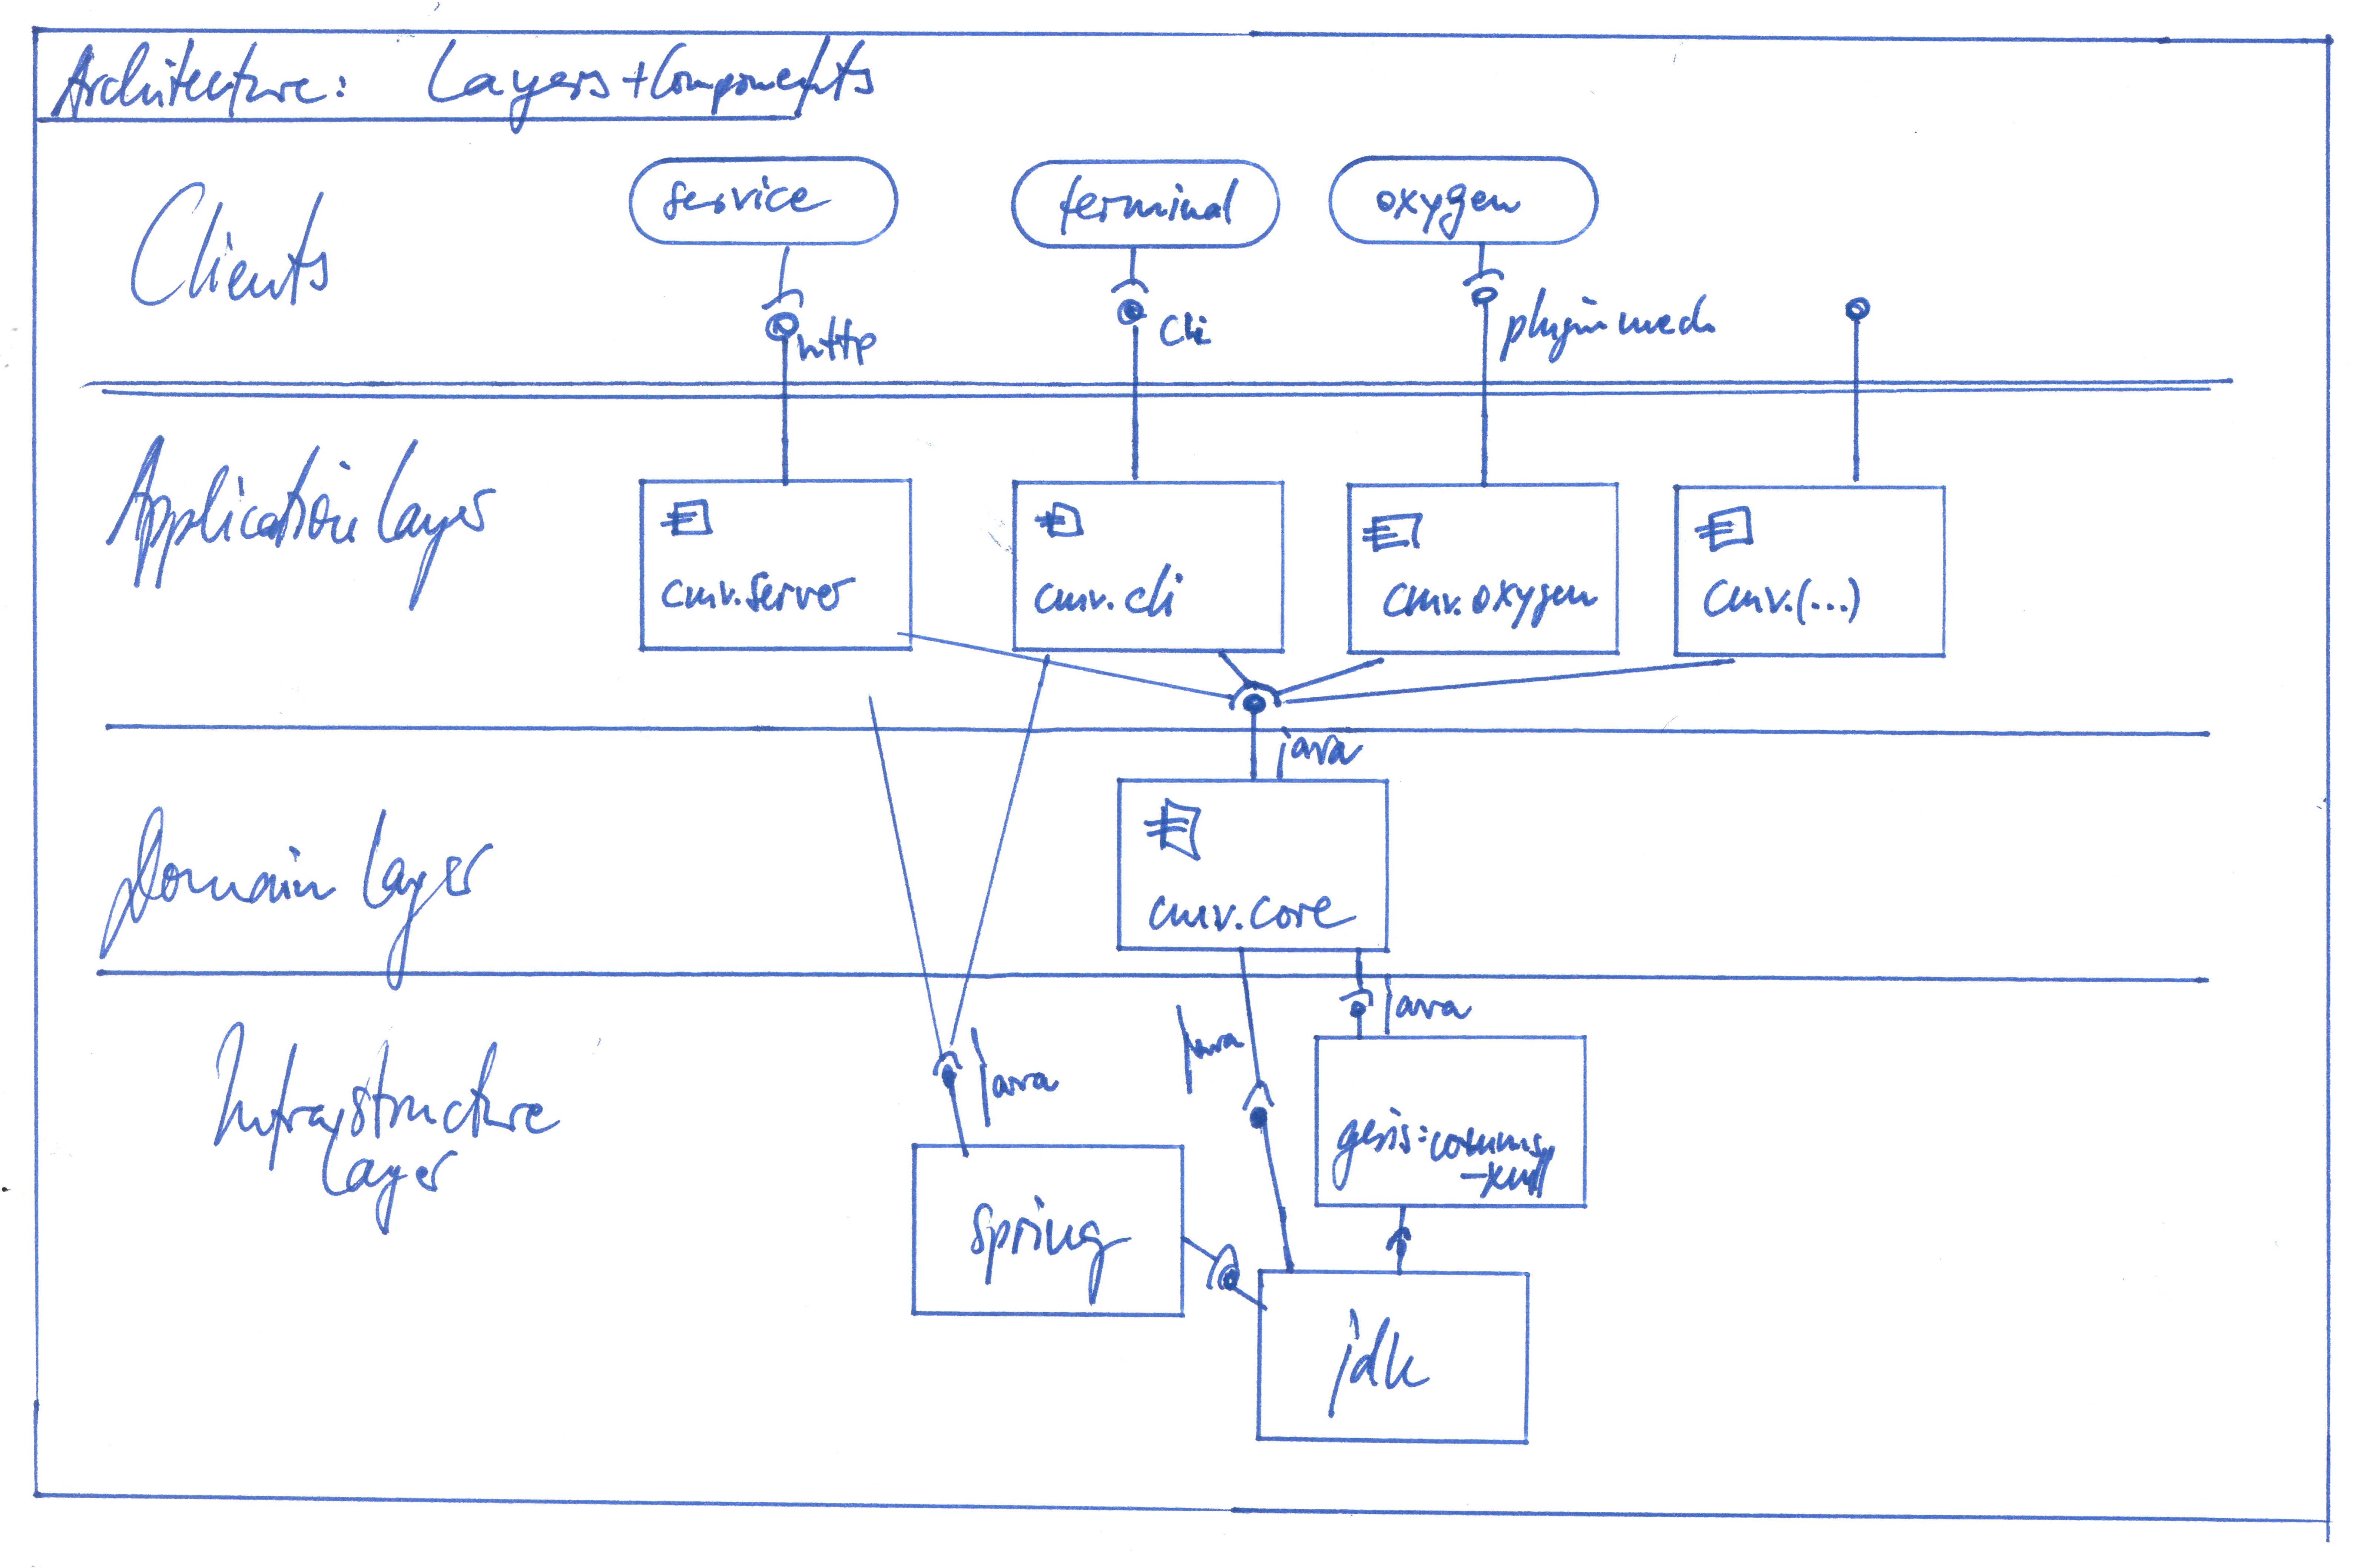 Architecture: Layers + Components
Clients
service
terminal
oxygen
http
cli
Application Layer
cmv.server
cmv.cli
cmv.oxygen
cmv.(...)
java
Domain Layer
cmv.core
java
java
java
Infrastructure
Layer
spring
jdk